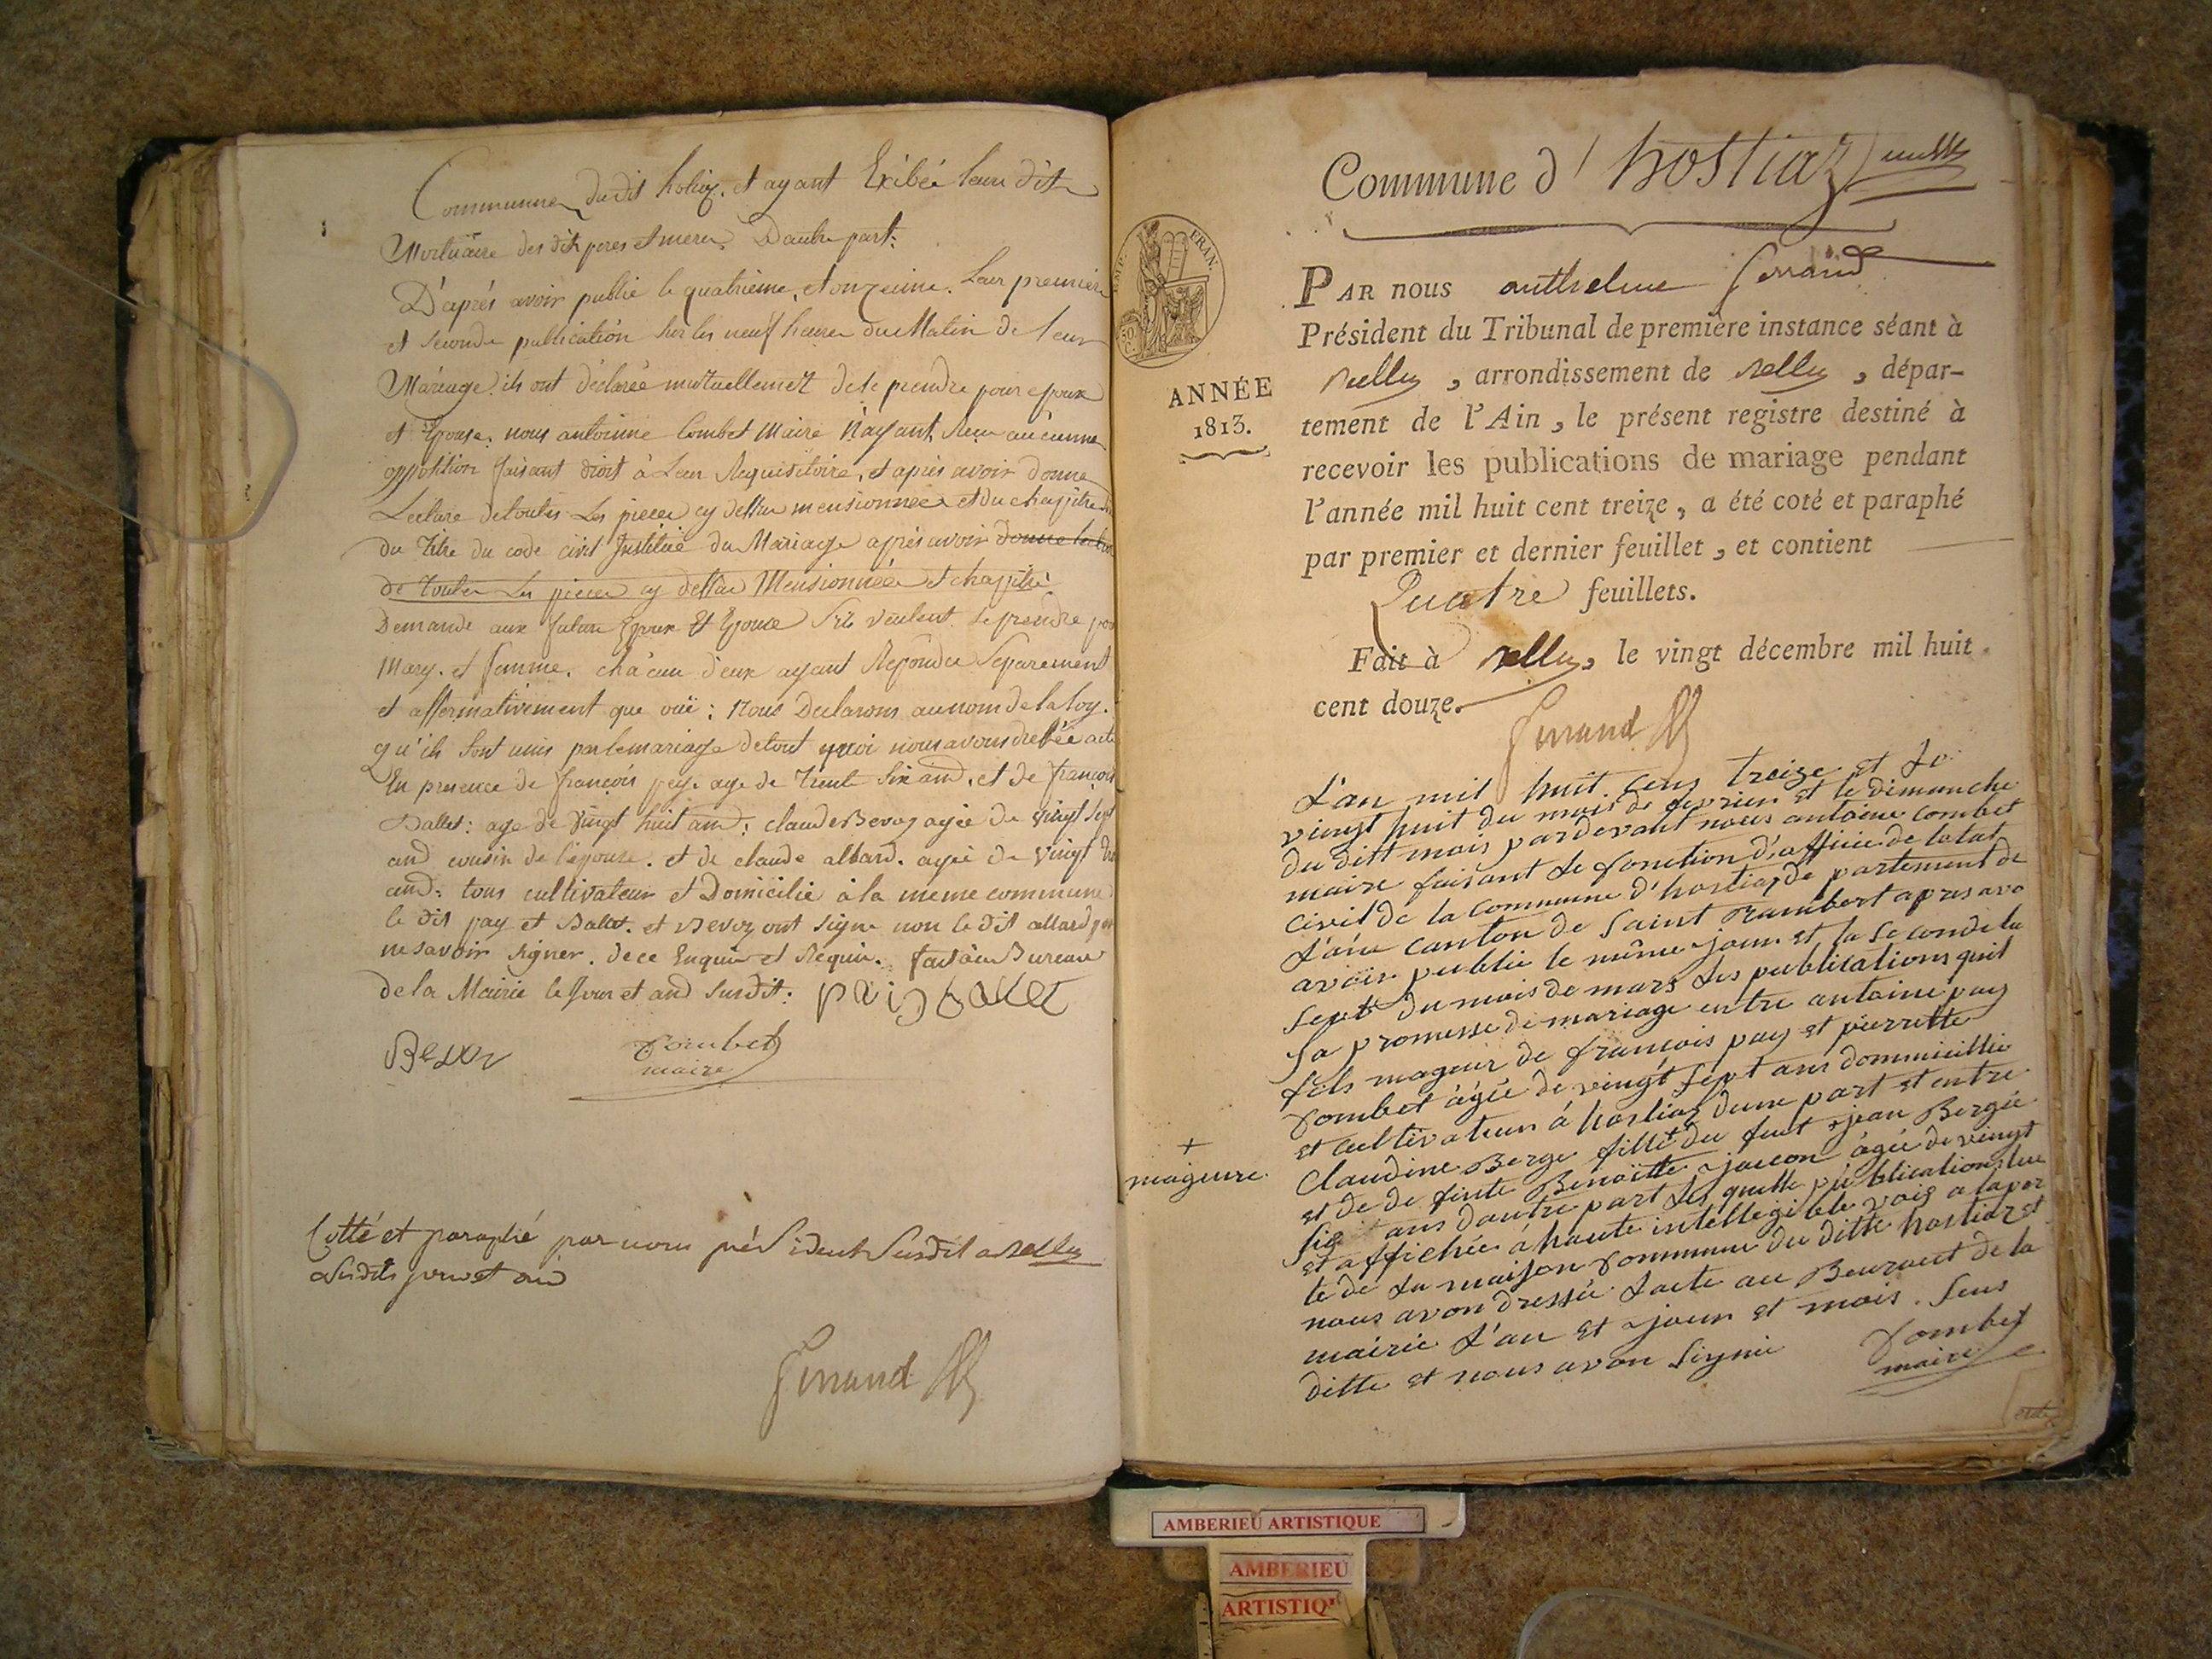 Communne du dit hostiaz. et ayant Exibée leur dits
Mortuaire des dits peres et mere. D'autre part.
D'aprés avoir publié le quatrieme, et onzeime. Leur premiere
et seconde publication sur les neuf heures du Matin de leur
Mariage. ils ont déclarée mutuellement de se prendre pour epoux
et Epouse. nous antoinne Combet Maire N'ayant Reçu aucunne
oppotition faisant droit à Leur Requisitoire, et aprés avoir donne
Lecture de toutes Les pieces cy dessus mensionnée et du chapitre
du Titre du code civil Justitué du Mariage aprés avoir donne lecture
de toutes Les pieces cy dessus Mensionnée et chapitre
Demande aux future Epoux Et Epouse S'ils veulent se prendre pour
Mary. et femme. chacun d'eux ayant Repondu Separement
et affermativement que oüi : Nous Declarons au nom de la Loy.
qu'ils sont unis par le mariage de tout quoi nous avons dressée acte
En presence de françois pey. age de trente six and. et de françois
Ballet : age de vingt huit and : claude Bevoz agée de vingt sept
and cousin de l'epouse. et de claude allard. agée de vingt
and : tous cultivateur et Domicilié à la meme commune
le dit pay et Ballet. et Bevoz ont signe non le dit allard pour
ne savoir signer. de ce Enquis et Requis. fait au Bureau
de la Mairie le Jour et and Susdit : pais ballet
Bevoz Combet
maire
Cotté et paraphé par nous président Susdit a Belley
Susdits jour et an
Ferrand
Commune d' hostiaz
EMP. FRAN.
PAR nous anthelme ferrand
Président du Tribunal de première instance séant à
Belley, arrondissement de Belley, dépar-
ANNÉE
1813.
tement de l'Ain, le présent registre destiné à
recevoir les publications de mariage pendant
l'année mil huit cent treize, a été coté et paraphé
par premier et dernier feuillet, et contient
Quatre feuillets.
Fait à Belley, le vingt décembre mil huit
cent douze.
Ferrand
L'an mil huit cens treize et le
vingt huit du mois de fevrier et le dimanche
du ditt mois pardevant nous antoine Combet
maire faisant le fonction d'affice de letat
civil de la commune d'hostiaz de partement de
L'ain canton de Saint Rambert apres avo
avoir publie le même jour et la seconde le
Sept du mois de mars Les publications quil
Sa promesse de mariage entre antoine pay
fils mageur de francois pay et pierrette
Combet agée de vingt Sept ans dommicillie
et cultivateur à hostiaz dune part et entre
Claudine Berge fille + du feut jean Bergée
+
mageure
et de de feute Benoitte joucon agée de vingt
Six ans dautre part Les quelle publications lue
et affichée a haute intellegible voix a la por
te de La maison Commune du ditte hostiaz et
nous avon dressée L'acte au Beuraut de la
mairie L'an et jour et mois Sus
ditte et nous avon Signie Combet
maire
AMBERIEU ARTISTIQUE
AMBERIEU
ARTISTIQ